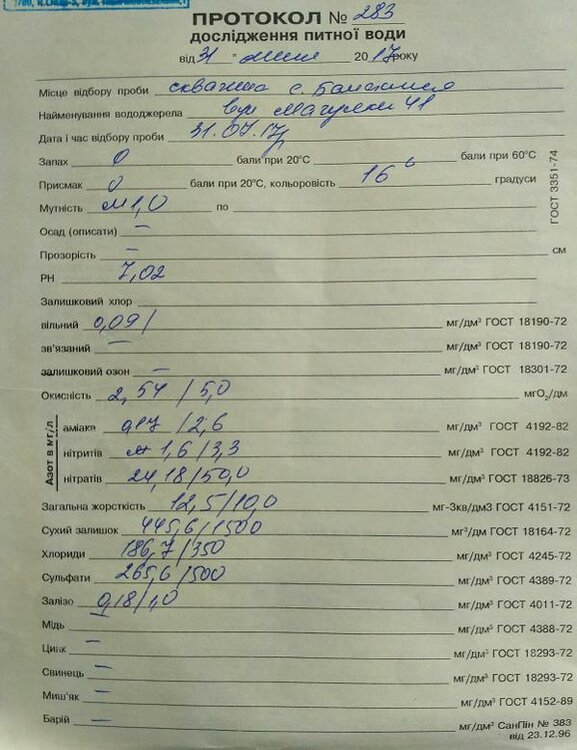 ПРОТОКОЛ № 283
дослідження питної води
від 31 " липня 2017 року
Місце відбору проби скважина с.
Найменування вододжерела вул 41
Дата і час відбору проби 31.07.17р
Запах 0 бали при 20°С бали при 60°С
Присмак 0 бали при 20°С, кольоровість 16° градуси
ГОСТ 3351-74
Мутність м1,0 по
Осад (описати) —
Прозорість — см
РН 7,02
Залишковий хлор
вільний 0,09/ мг/дм³ ГОСТ 18190-72
зв'язаний — мг/дм³ ГОСТ 18190-72
залишковий озон — мг/дм³ ГОСТ 18301-72
Окисність 2,54/5,0 мгО₂/дм
Азот в мг/л
аміака 0,17/2,6 мг/дм³ ГОСТ 4192-82
нітритів м 1,6/3,3 мг/дм³ ГОСТ 4192-82
нітратів 24,18/50,0 мг/дм³ ГОСТ 18826-73
Загальна жорсткість 12,5/10,0 мг-Зкв/дм3 ГОСТ 4151-72
Сухий залишок 445,6/1500 мг³/дм ГОСТ 18164-72
Хлориди 186,7/350 мг/дм³ ГОСТ 4245-72
Сульфати 265,6/500 мг/дм³ ГОСТ 4389-72
Залізо 0,18/1,0 мг/дм³ ГОСТ 4011-72
Мідь мг/дм³ ГОСТ 4388-72
Цинк — мг/дм³ ГОСТ 18293-72
Свинець — мг/дм³ ГОСТ 18293-72
Миш'як — мг/дм³ ГОСТ 4152-89
Барій — мг/дм³ СанПін № 383
від 23.12.96